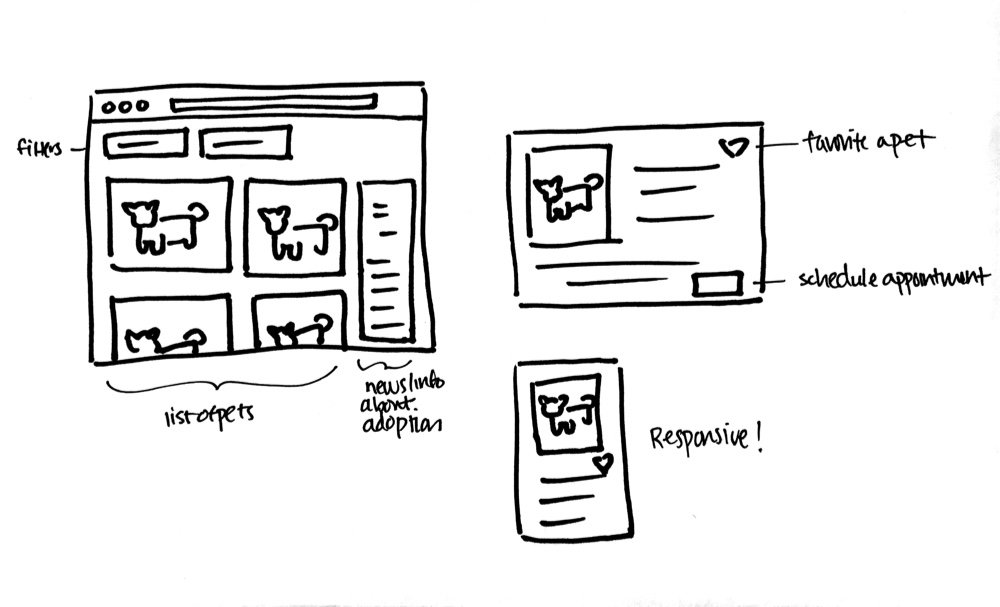 filters
list of pets
news/info
about
adoption
favorite a pet
schedule appointment
Responsive!